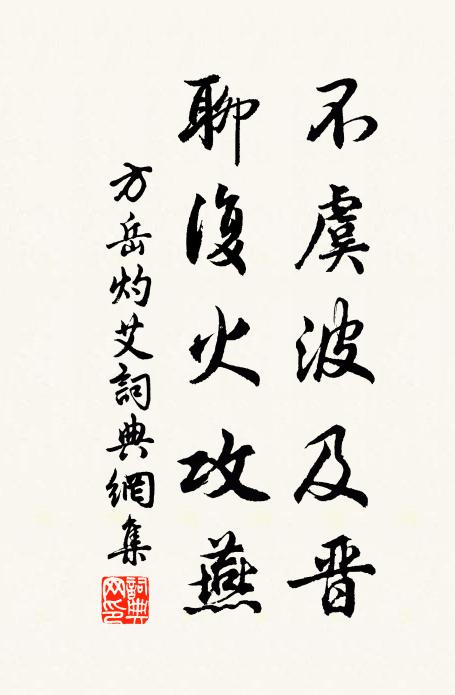 不虞波及晋
聊復火攻燕
方岳灼艾詞典網集
詞典网印